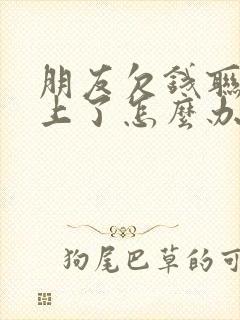 朋友欠錢聯
上了怎麼办
狗尾巴草的可